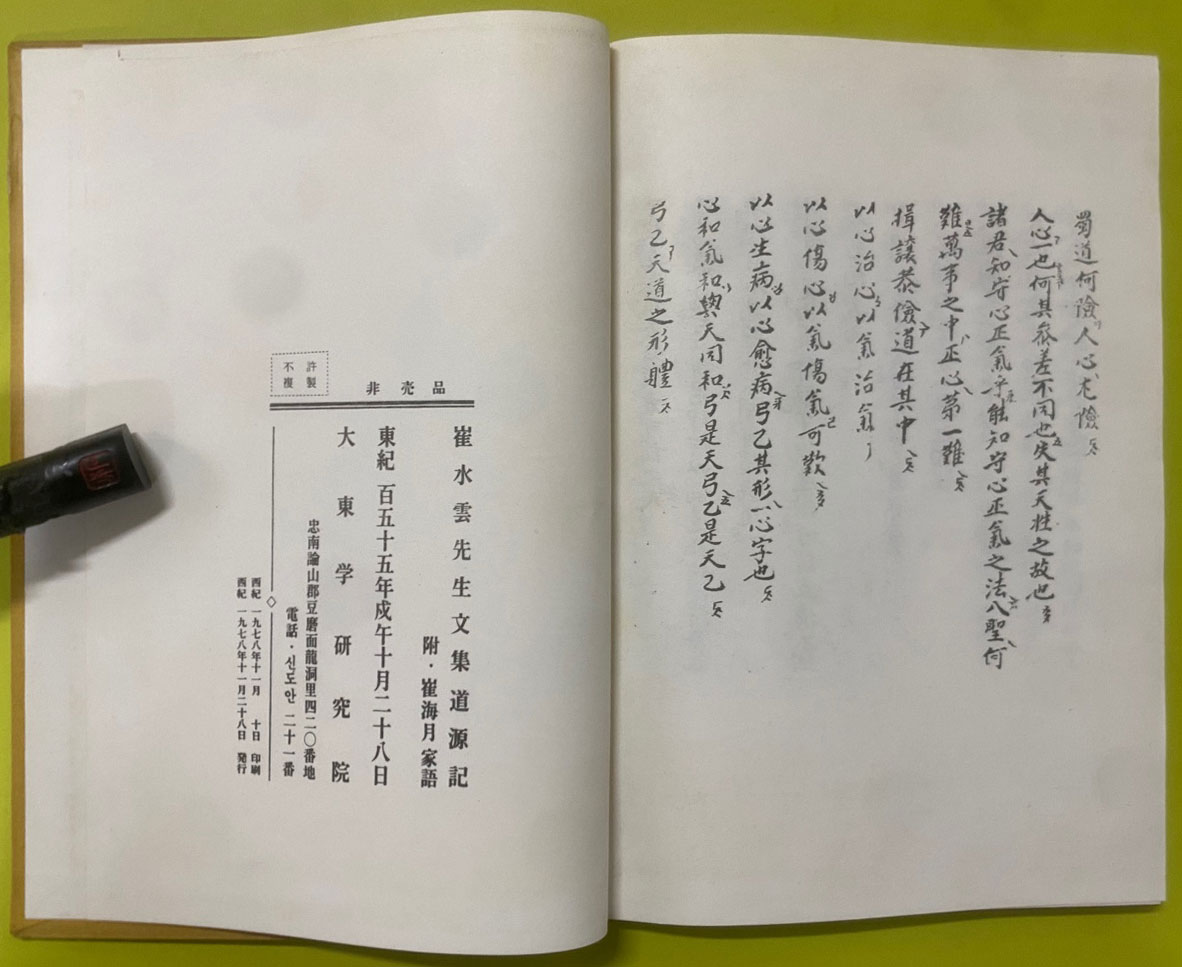 蜀道何險人心尤險
人心一也何其參差不同也失其天性之故也
諸君知守心正氣乎能知守心正氣之法入聖何
難萬事之中正心第一難
揖讓恭儉道在其中
以心治心以氣治氣
以心傷心以氣傷氣可歎
以心生病以心愈病弓乙其形一心字也
心和氣和與天同和弓是天弓乙是天乙
弓乙天道之形體
非売品
不許
複製
崔水雲先生文集道源記
附・崔海月家語
東紀 百五十五年戍午十月二十八日
大東学研究院
忠南論山郡豆磨面龍洞里四二〇番地
電話・신도안 二十一番
西紀 一九七八年十一月 十日 印刷
西紀 一九七八年十一月二十八日 発行